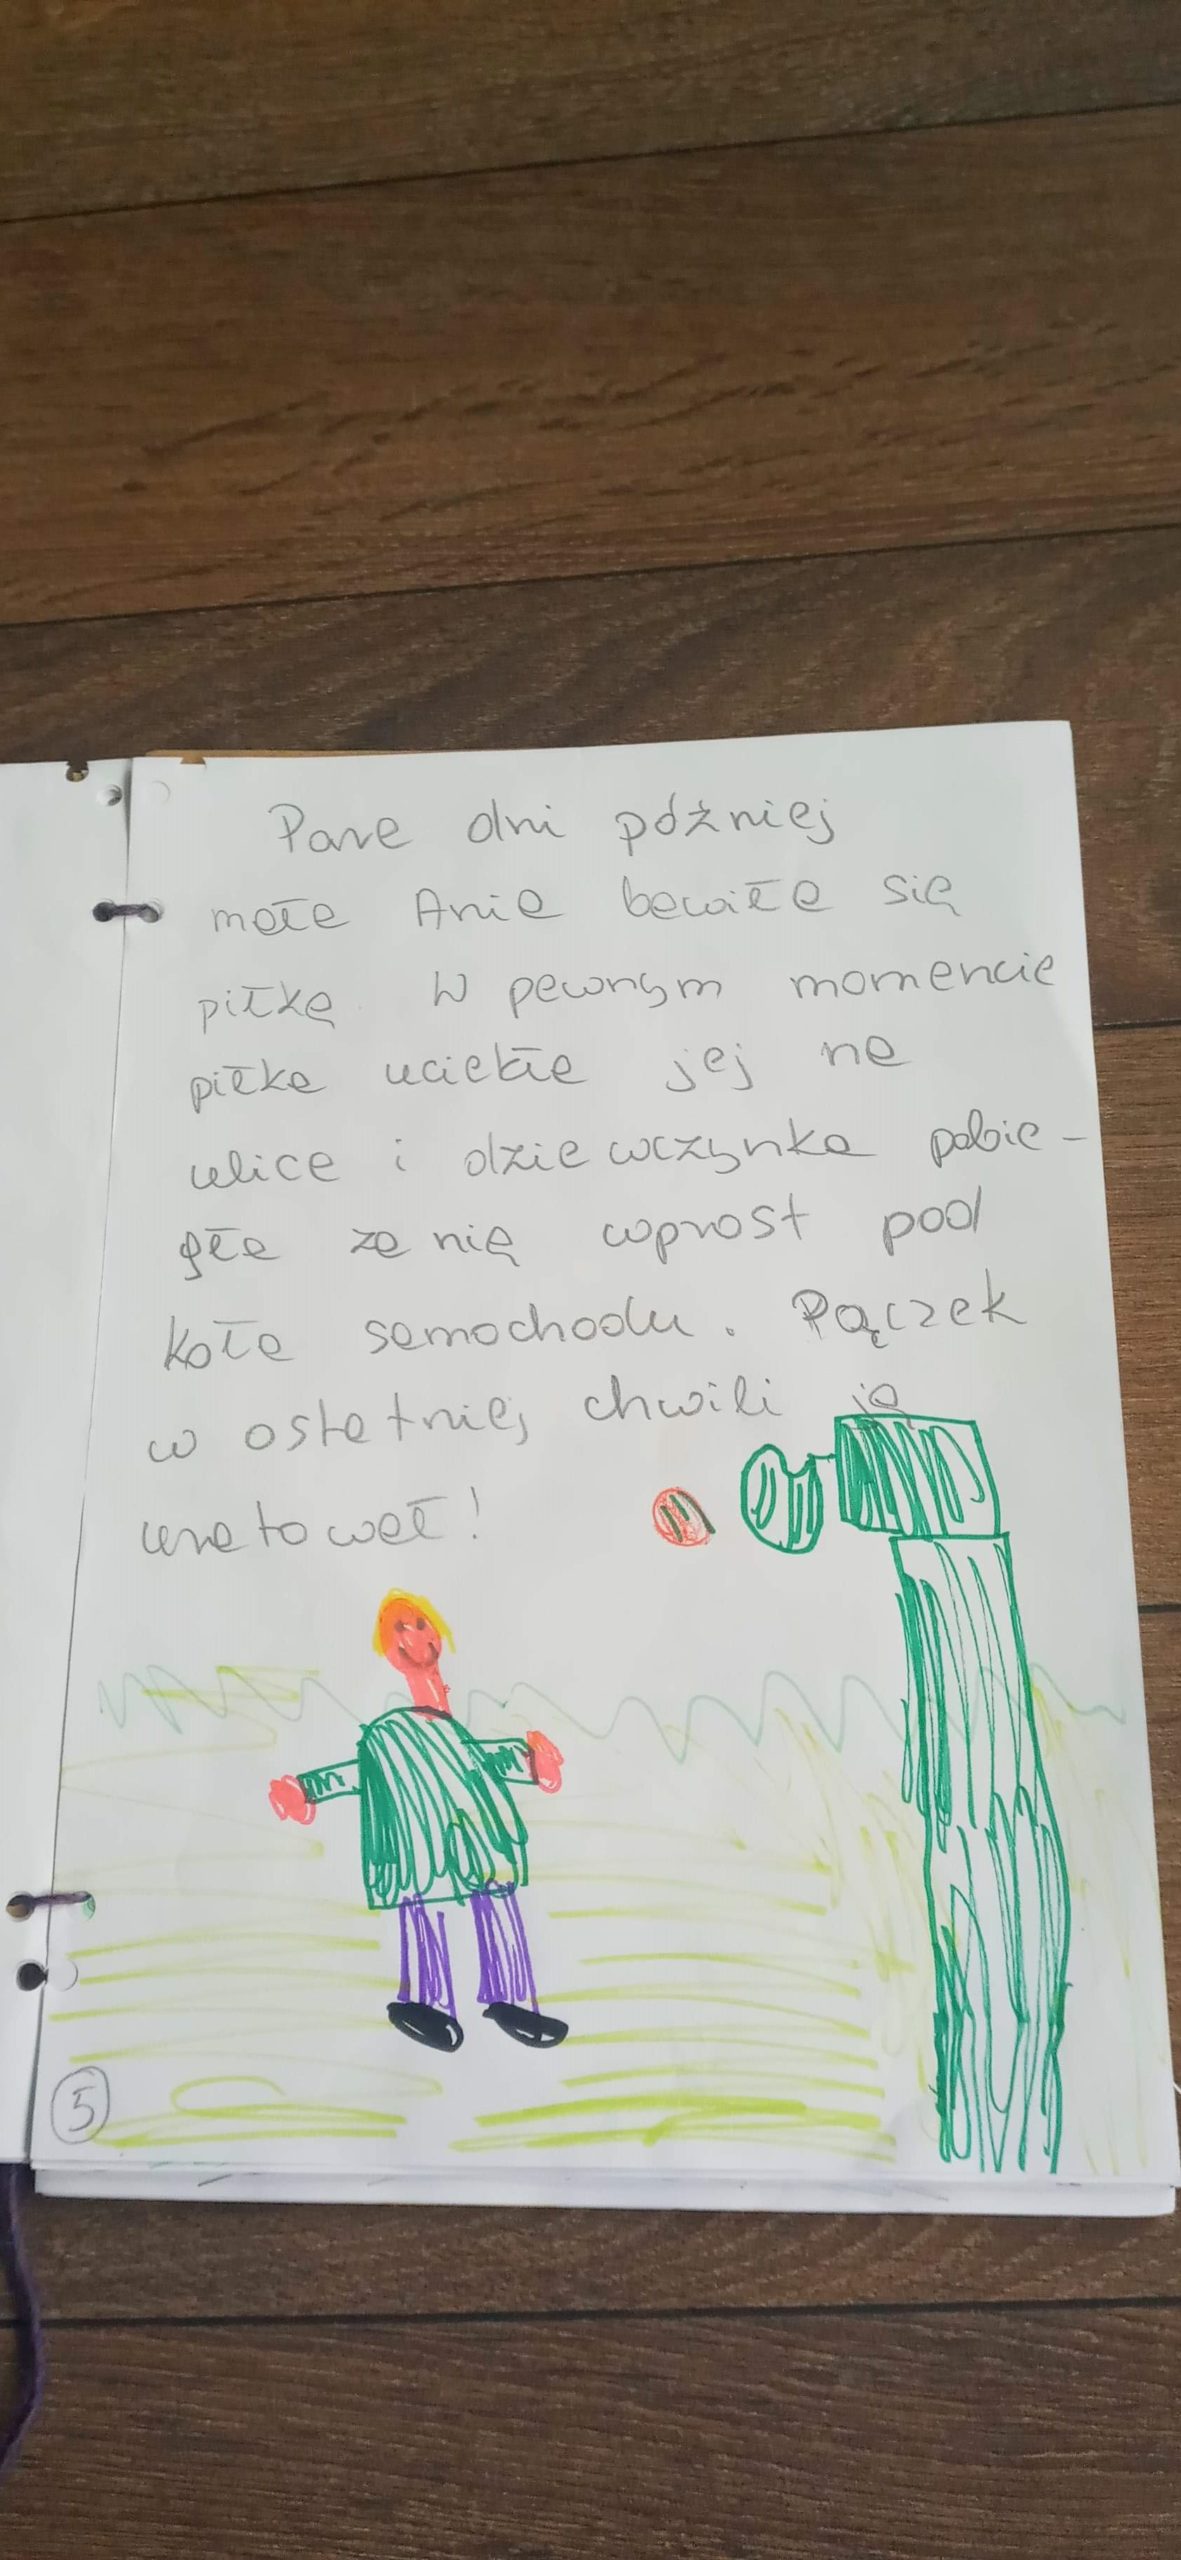 Parę dni później
mała Ania bawiła się
piłką. W pewnym momencie
piłka uciekła jej na
ulicę i dziewczynka pobie-
gła za nią wprost pod
koła samochodu. Pączek
w ostatniej chwili ją
uratował!
5